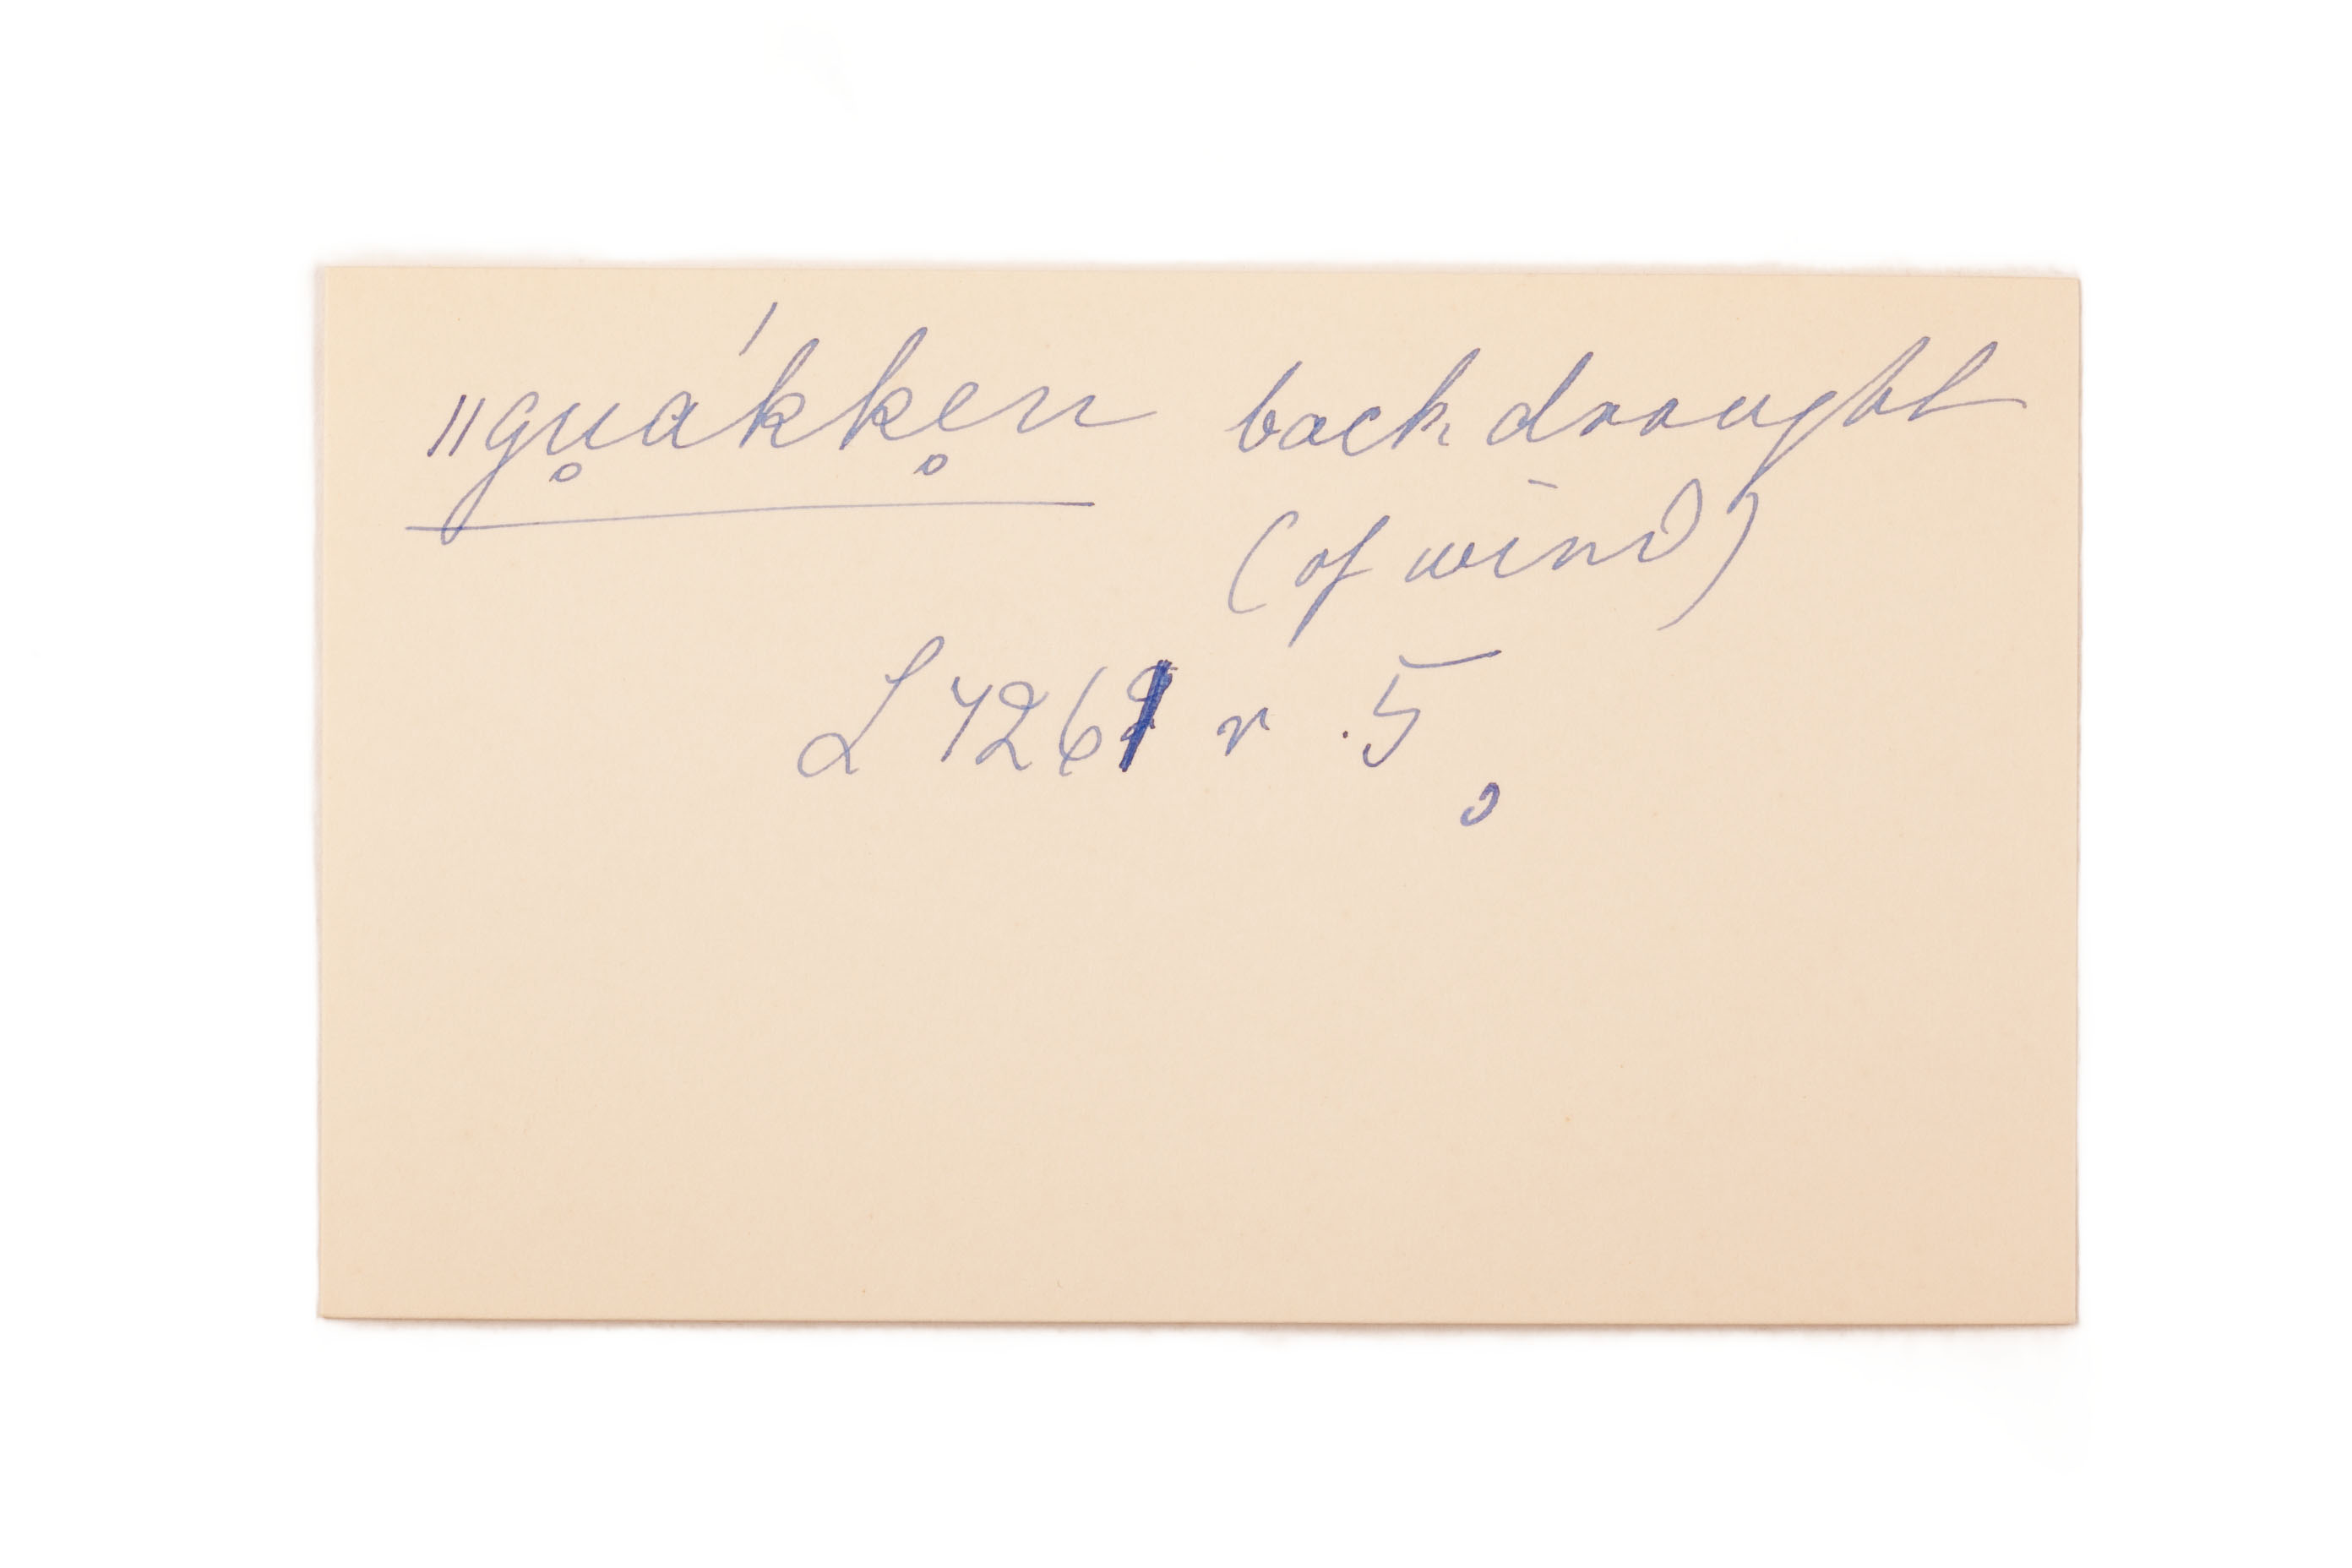 ǁgu̥ákke̥n back draught
(of wind)
L 7261 r .5